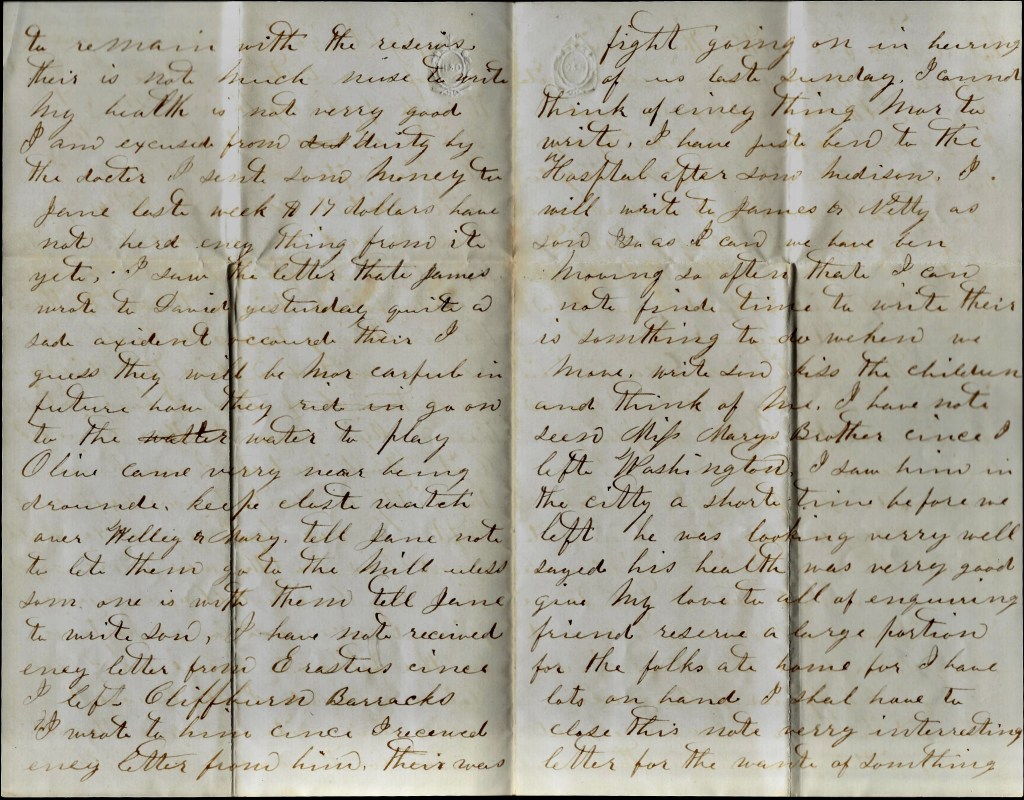 to remain with the reserivs
their is not much nuse to write
My health is not verry good
I am excused from duity by
the docter I sent som money to
Jane laste week $ 17 dollars have
not herd eney thing from ite
yete. I saw the letter thate James
wrote to David yesturday quite a
sade axident occourde their I
guess they will be mor carfull in
future how they rid in go on
to the watter water to play
Olive came verry near being
drounde. keepe closte watch
over Willey & Mary. tell Jane note
to lete them go to the Mill uless
som one is with them tell Jane
to write son, I have note received
eney letter from Erastus cince
I left Cliffburn Barracks
I wrote to him cince I received
eney letter from him. their was
fight going on in hering
of us laste sunday. I cannot
think of einey thing mor to
write. I have juste ben to the
Hospital after som medison. I
will write to James & Netty as
son as I can we have ben
mooving so often thate I can
note finde time to write their
is somthing to do wehen we
Move. write son kiss the children
and think of me. I have note
seen Miss Marys Brother cince I
left Washington. I saw him in
the citty a shorte time before we
left he was looking verry well
sayed his health was verry good
give my love to all of enquiring
friend reserve a large portion
for the folks ate home for I have
lots on hand I shal have to
close this note verry interresting
letter for the wante of somthing